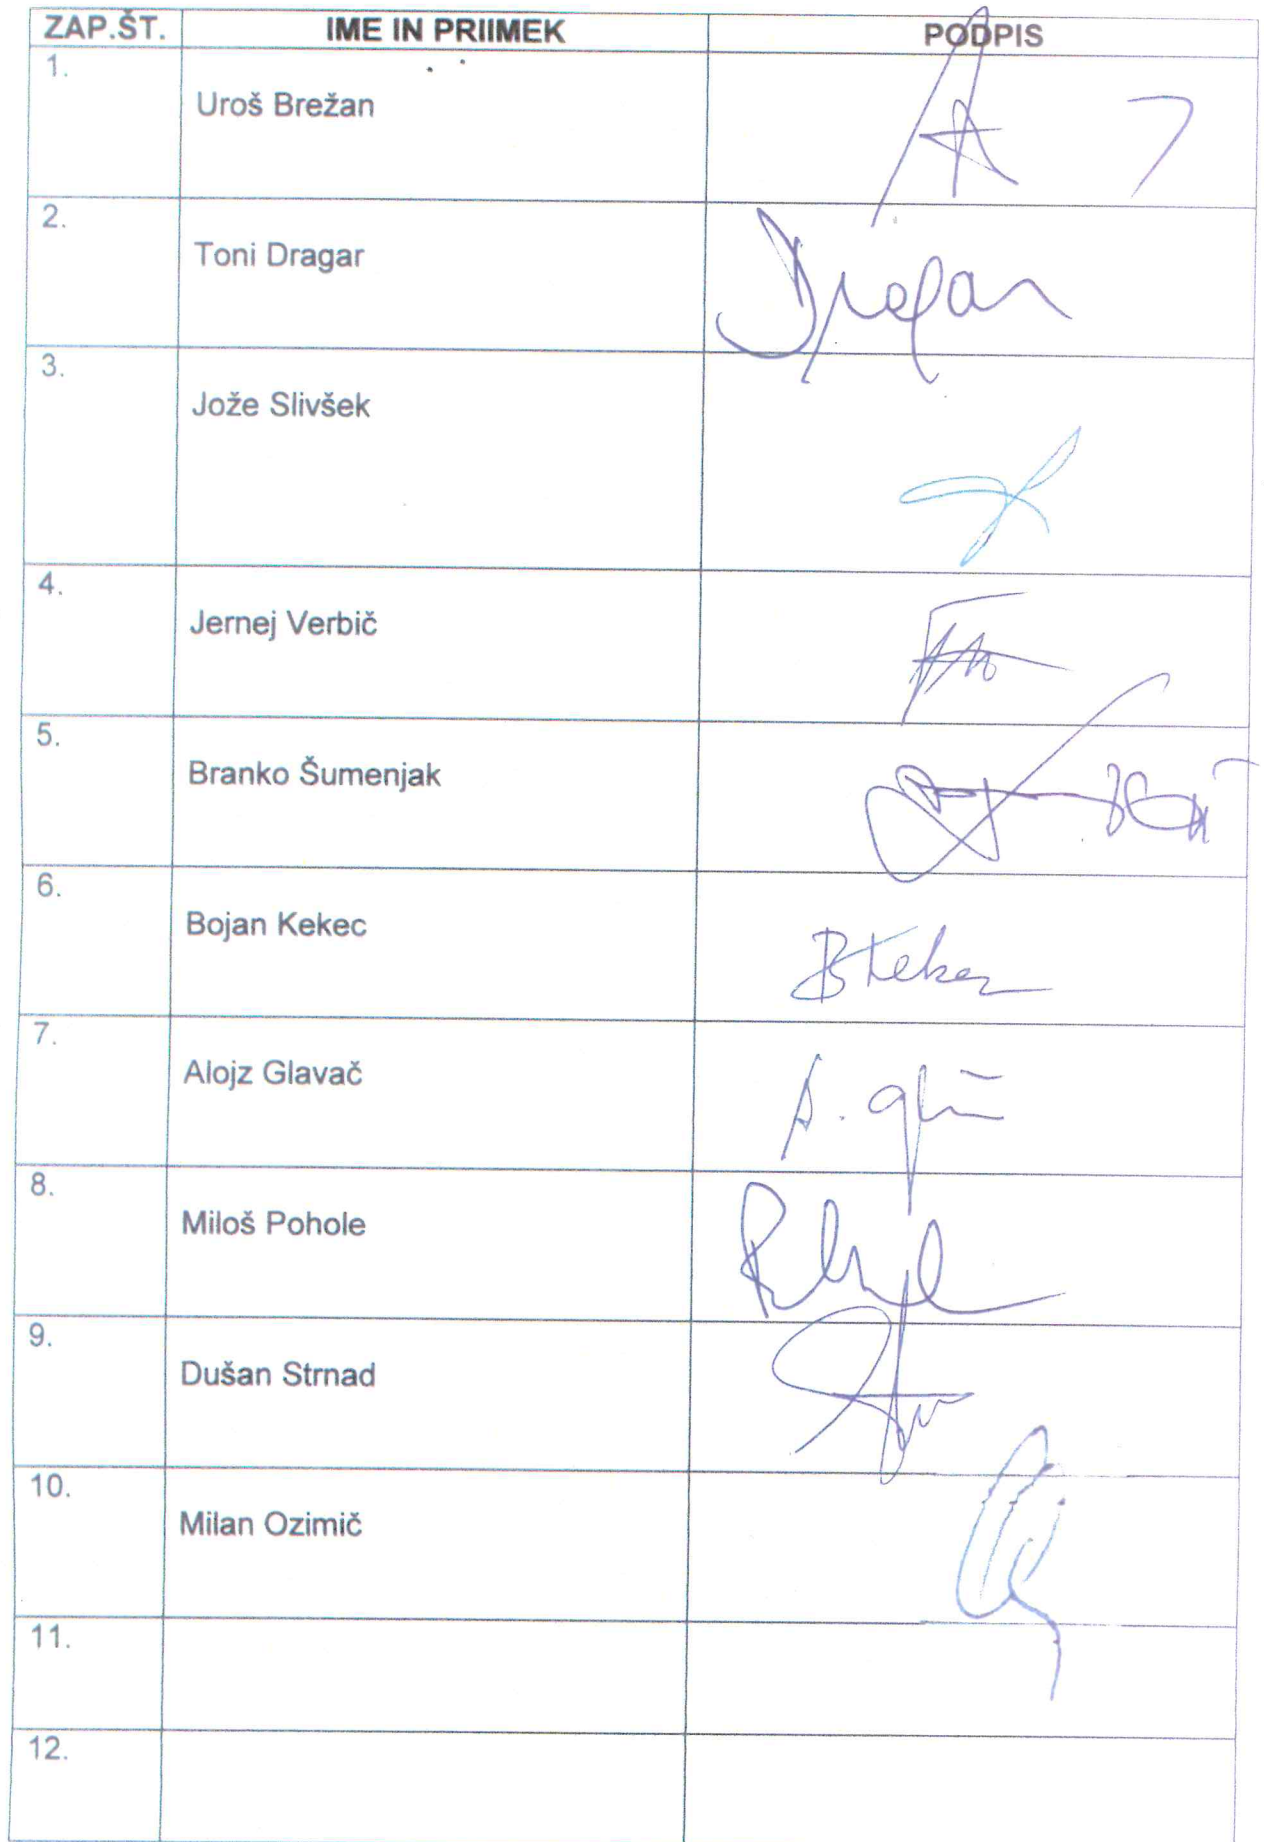 ZAP.ŠT. IME IN PRIIMEK PODPIS
1.
Uroš Brežan
2.
Toni Dragar
3.
Jože Slivšek
4.
Jernej Verbič
5.
Branko Šumenjak
6.
Bojan Kekec
7.
Alojz Glavač
8.
Miloš Pohole
9.
Dušan Strnad
10.
Milan Ozimič
11.
12.